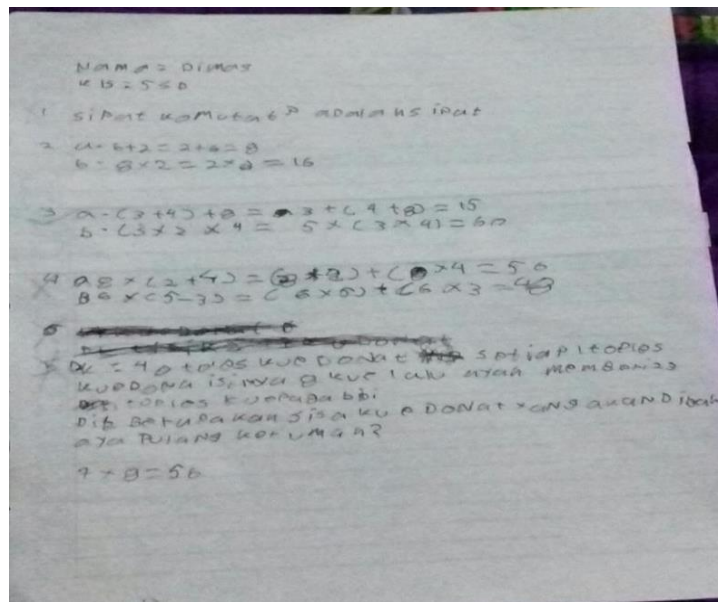 Nama = Dimas
KLS = 5 SD
1 sipat komutatip adalah sipat
2 a- 6+2 = 2+6 = 8
b- 8 x 2 = 2 x 8 = 16
3 a- (3+4) + 8 = 3 + (4+8) = 15
b- (3 x 2 x 4 = 5 x (3 x 4) = 60
4 a 8 x (2+4) = ( ) + ( x 4 = 56
B 6 x (5-3) = (6 x 5) + (6 x 3 = 48
5
Dik = 40 toples kue Donat setiap 1 toples
kue Dona isinya 8 kue lalu ayah memberi 33
toples kue pada bibi
Dit Berapakan sisa kue Donat yang akan Dibah
aya pulang kerumah?
7 x 8 = 56